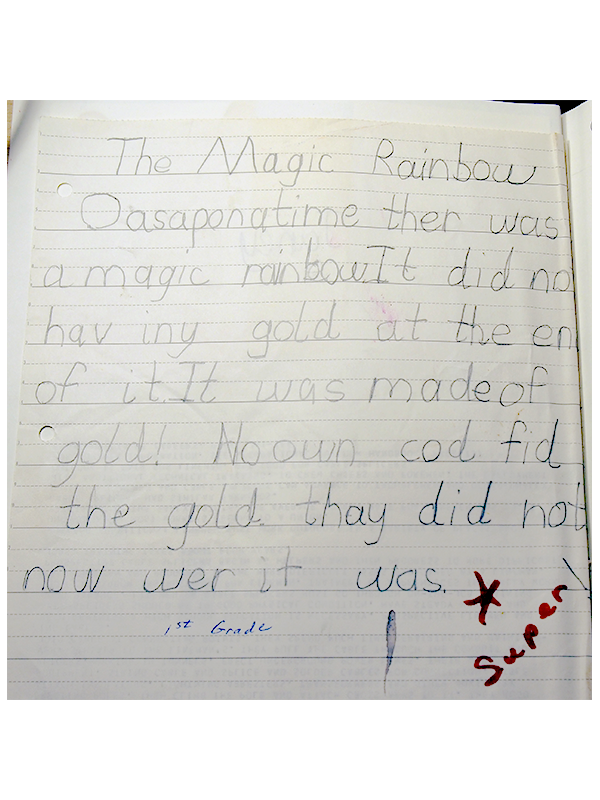 The Magic Rainbow
Oasaponatime ther was
a magic rainbow.It did no
hav iny gold at the en
of it.It was made of
gold! Noown cod fid
the gold. thay did not
now wer it was.
1st Grade
Super